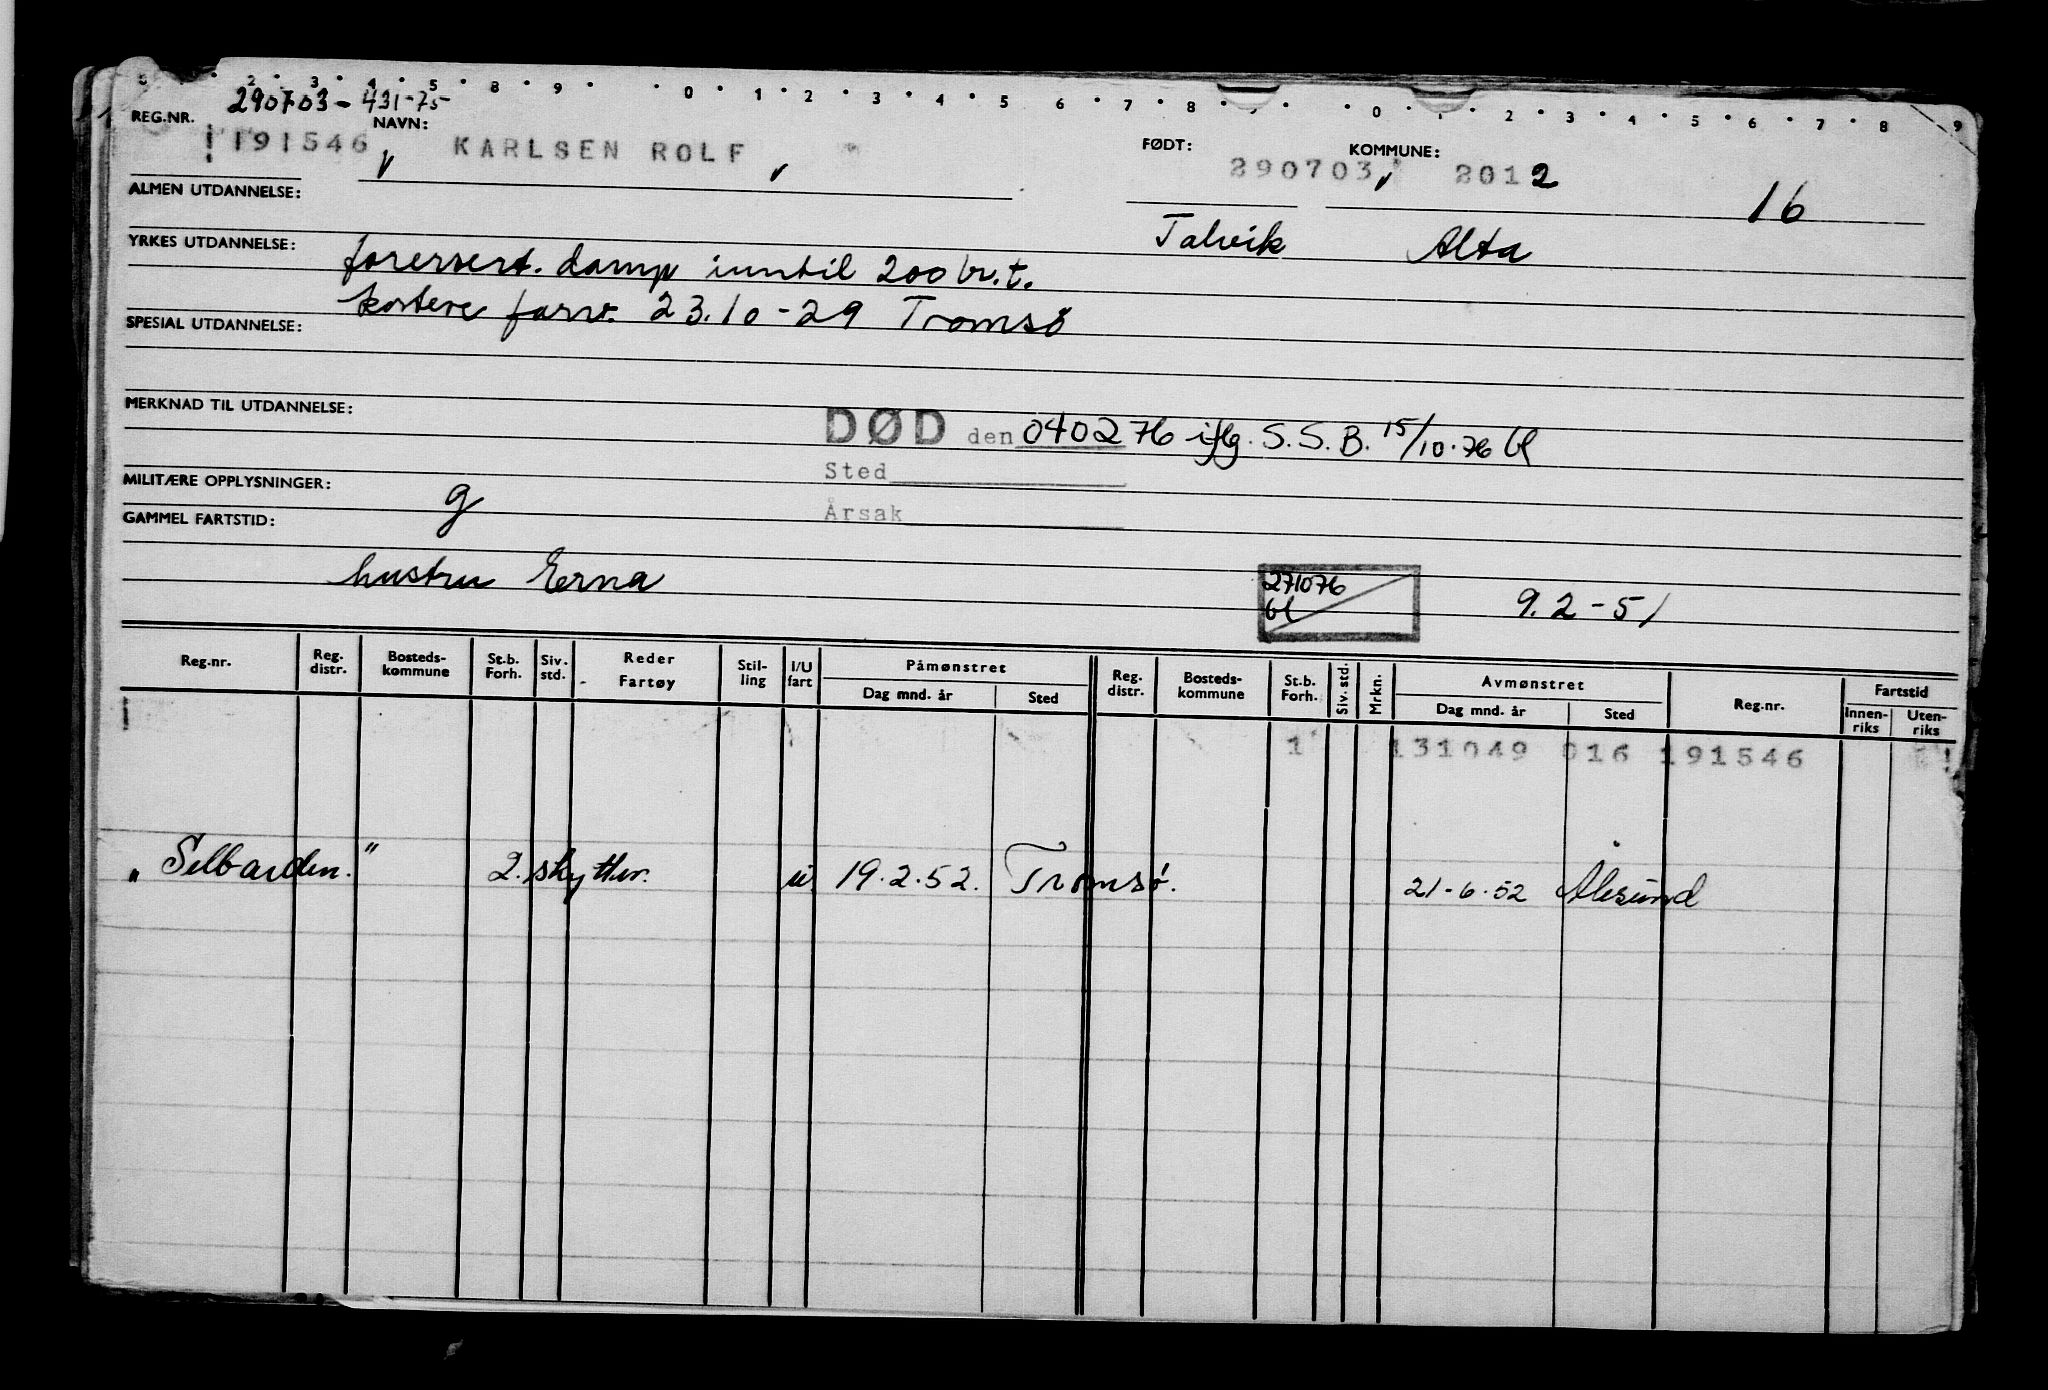 2 3 4 5 8 9 0 1 2 3 4 5 6 7 8 0 1 2 3 4 5 6 7 8 9
290703-431-75-
REG.NR. NAVN: FØDT: KOMMUNE:
191546 KARLSEN ROLF 290703 2012
16
ALMEN UTDANNELSE:
Talvik Alta
YRKES UTDANNELSE: førersert. damp inntil 200 br.t.
kystere farv. 23.10-29 Tromsö
SPESIAL UTDANNELSE:
MERKNAD TIL UTDANNELSE:
DØD den 040276 iflg. S.S.B. 15/10.76 bl
Sted
MILITÆRE OPPLYSNINGER: g
Årsak
GAMMEL FARTSTID:
hustru Erna
271076
bl
9.2-51
Reg.nr. Reg. distr. Bosteds-kommune St.b. Forh. Siv. std. Reder Fartøy Stil-ling I/U fart Påmønstret Dag mnd. år Sted Reg. distr. Bosteds-kommune St.b. Forh. Siv. std. Mrkn. Avmønstret Dag mnd. år Sted Reg.nr. Fartstid Innen-riks Uten-riks
1 131049 016 191546
"Selbarden." 2. skytter. u 19.2.52. Tromsø. 21-6.52 Ålesund